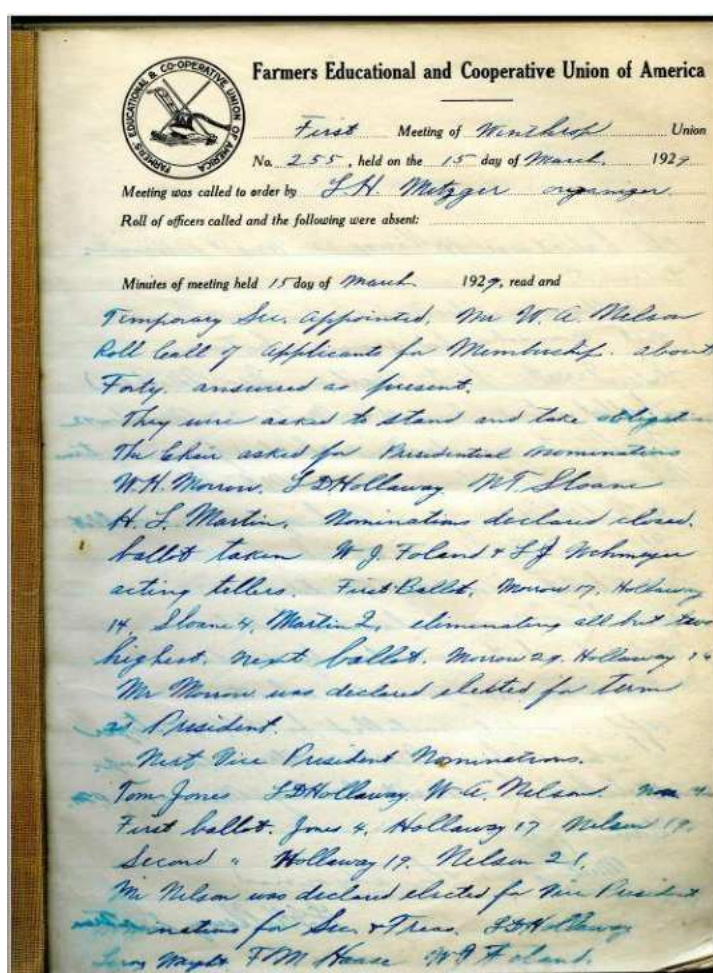 FARMERS' EDUCATIONAL & CO-OPERATIVE UNION OF AMERICA
Farmers Educational and Cooperative Union of America
First Meeting of Winthrop Union
No. 255, held on the 15 day of March, 1929
Meeting was called to order by Metzger organizer.
Roll of officers called and the following were absent:
Minutes of meeting held 15 day of March 1929, read and
Temporary Sec. Appointed. Mr W. A. Nelson
Roll Call of Applicants for Membership. about
Forty. answered as present.
They were asked to stand and take
The Chair asked for Presidential Nominations
W. H. Morrow. Hollaway Sloane
H. L. Martin. Nominations declared closed.
ballot taken W J. Foland &
acting tellers. First Ballot. Morrow 17. Hollaway
14. Sloane 4. Martin 2. eliminating all but two
highest. next ballot. Morrow 29. Hollaway
Mr Morrow was declared elected for term
as President.
Next Vice President Nominations.
Tom Jones Hollaway. W. A. Nelson
First ballot. Jones 4. Hollaway 17 Nelson 19.
Second " Hollaway 19. Nelson 21.
Mr Nelson was declared elected for Vice President
for Sec. & Treas. Hollaway
Wright F M Haase Foland.